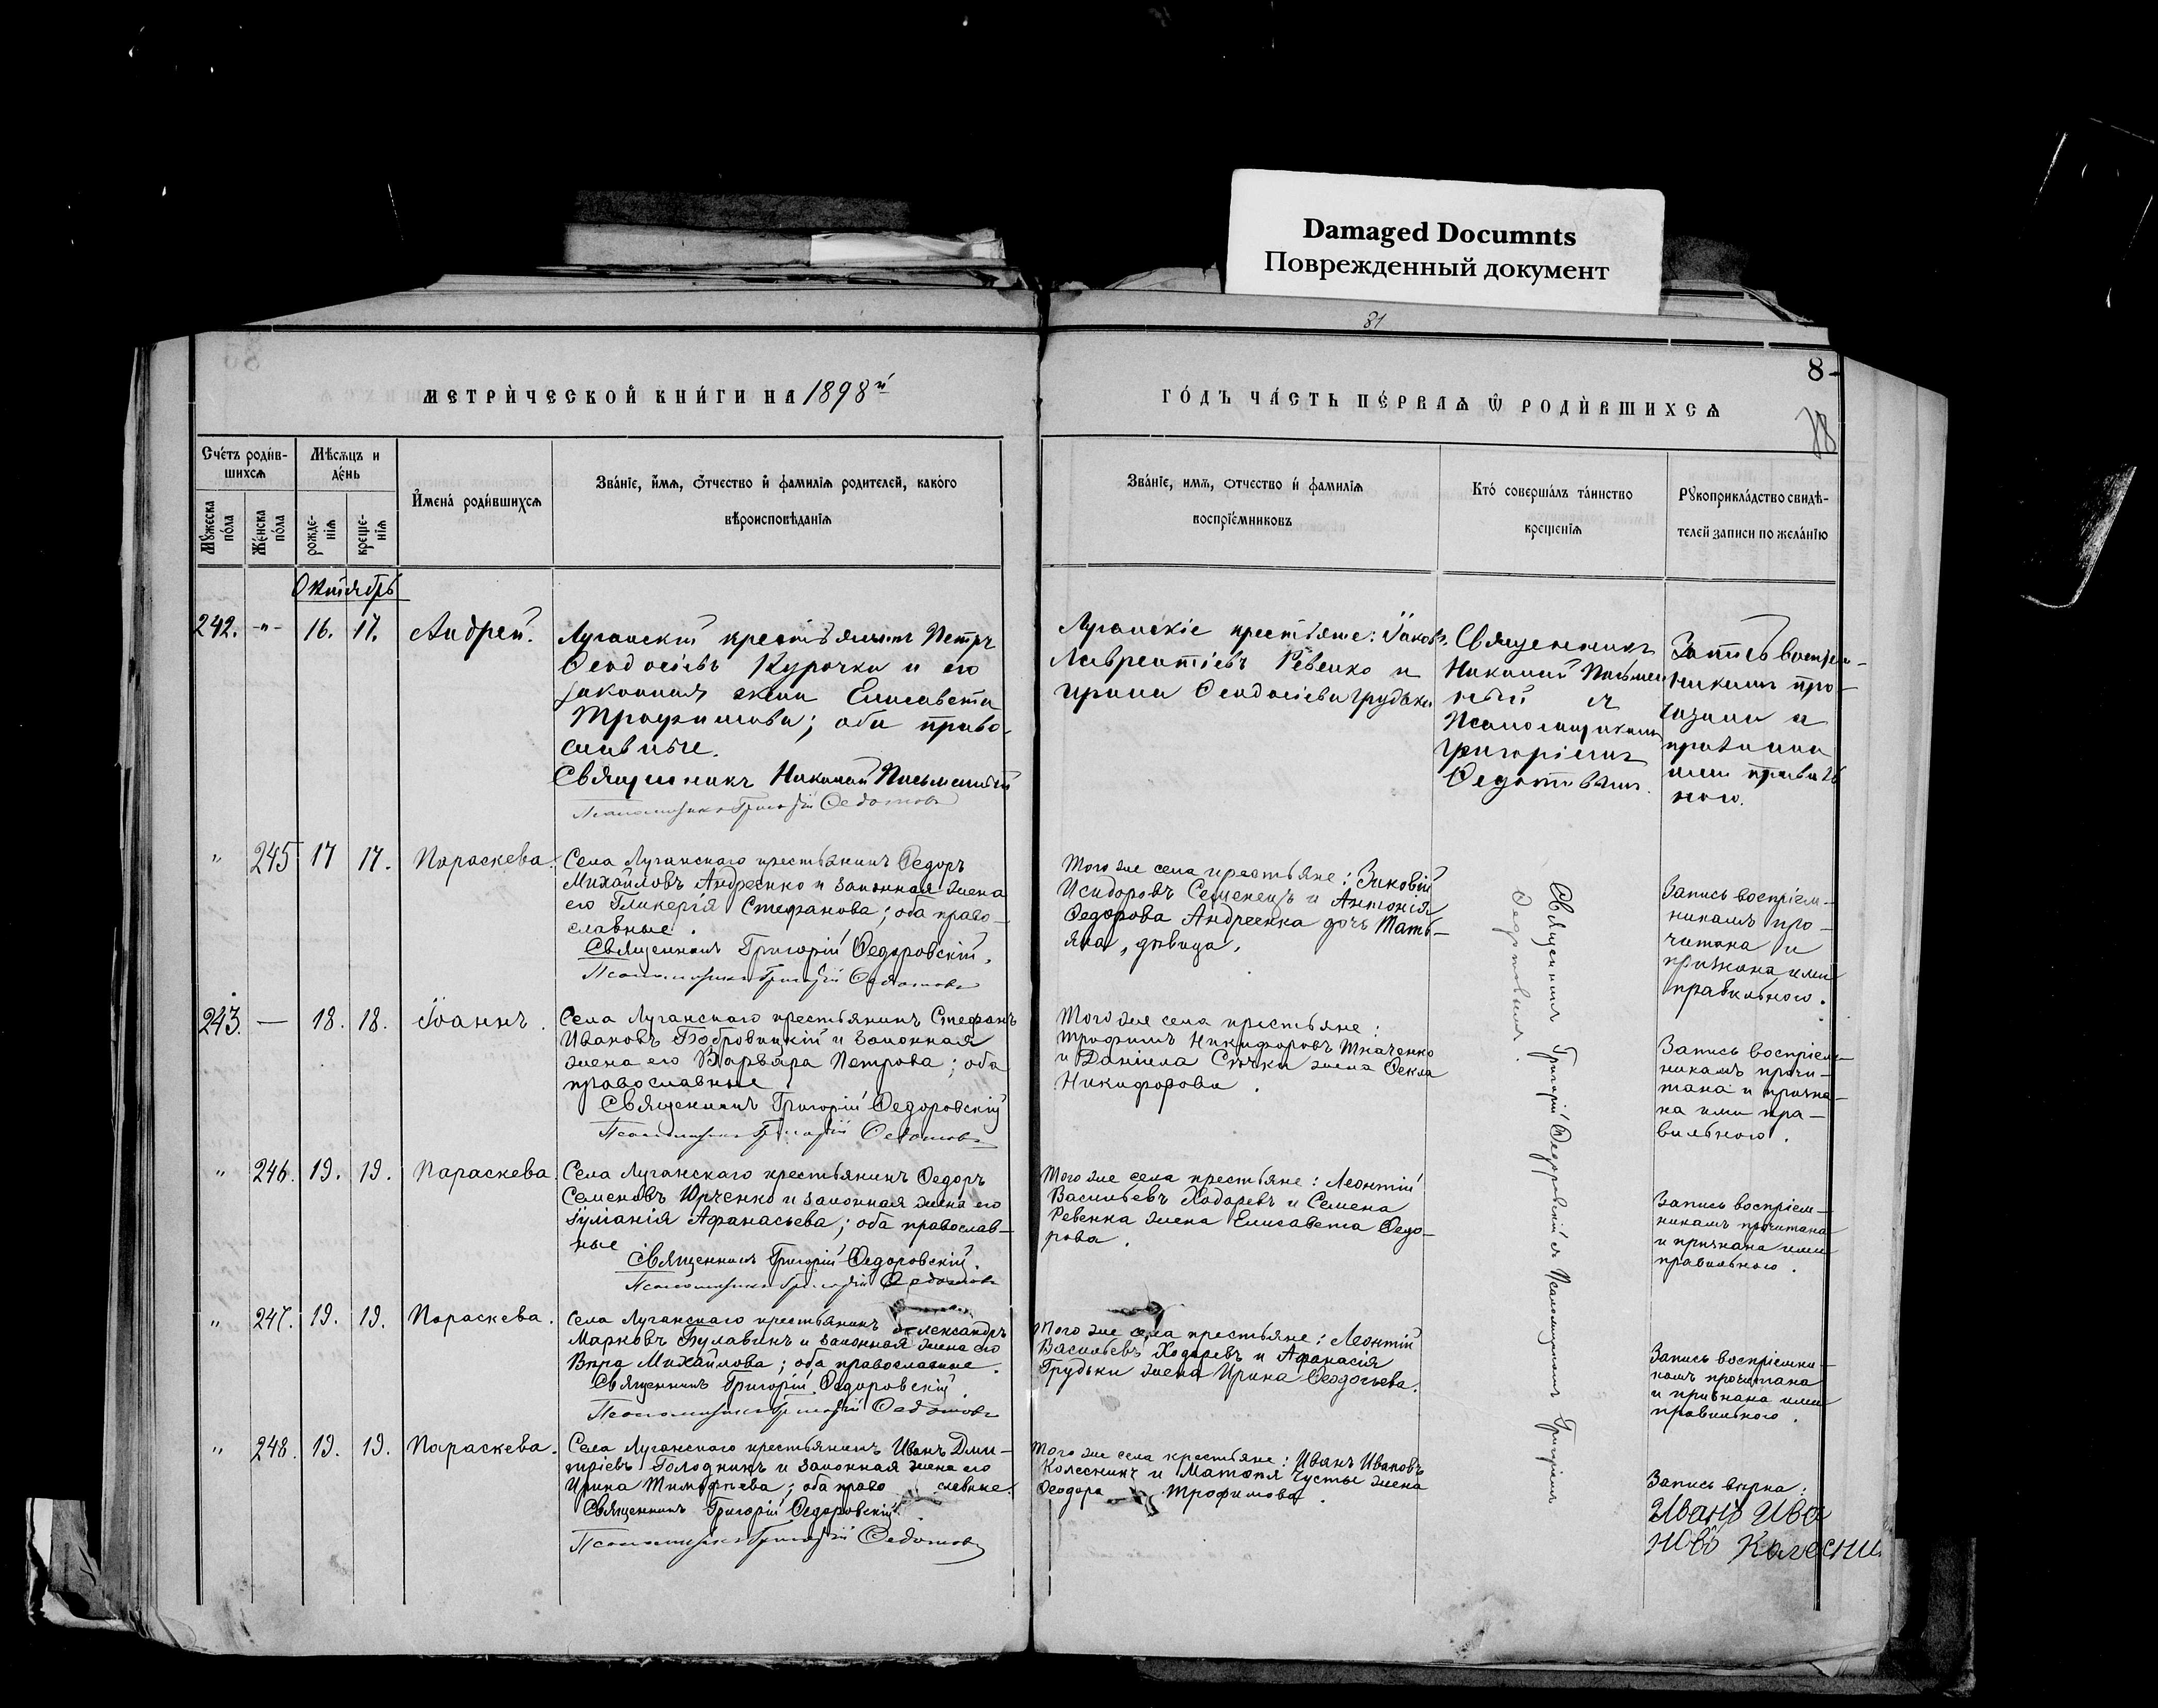 Damaged Documnts
Поврежденный документ
81
8
МЕТРИЧЕСКОЙ КНИГИ НА 1898й
ГОДЪ ЧАСТЬ ПЕРВАѦ Ѡ РОДИВШИХСѦ
Счетъ родив-
шихсѧ
Мѣсѧцъ и
день
Мужеска
пола
Женска
пола
рожде-
нїѧ
креще-
нїѧ
Имена родившихсѧ
Званїе, имѧ, ѻтчество и фамилїѧ родителей, какого
вѣроисповѣданїѧ
Званїе, имѧ, ѻтчество и фамилїѧ
воспрїемниковъ
Кто совершалъ таинство
крещенїѧ
Рꙋкоприкладство свидѣ-
телей записи по желанїю
Октябрь
242. -"- 16. 17. Андрей.
Луганскій крестьянинъ Петръ
Ѳеодосіевъ Курочка и его
законная жена Елисавета
Трофимова; оба право-
славные.
Священникъ Николай Письменный
Псаломщикъ Григорій Ѳедотовъ
Луганскіе крестьяне: Іаковъ
Лаврентіевъ Ревенко и
Ирина Ѳеодосіева Грудьки
Священникъ
Николай Письмен
ный съ
Псаломщикомъ
Григоріемъ
Ѳедотовымъ.
Запись воспріем-
никамъ про-
читана и
признана
ими правиль
ною.
" 245 17 17. Параскева.
Села Луганскаго крестьянинъ Ѳедоръ
Михайловъ Андреенко и законная жена
его Гликерія Стефанова; оба право-
славные.
Священникъ Григорій Ѳедоровскій.
Псаломщикъ Григорій Ѳедотовъ
Того же села крестьяне: Зиновій
Исидоровъ Семенецъ и Антонія
Ѳедорова Андреенка дочь Тать-
яна, дѣвица.
Запись воспріем-
никамъ про-
читана и
признана ими
правильною.
243. — 18. 18. Іоаннъ.
Села Луганскаго крестьянинъ Стефанъ
Ивановъ Бобровицкій и законная
жена его Варвара Петрова; оба
православные
Священникъ Григорій Ѳедоровскій
Псаломщикъ Григорій Ѳедотовъ
Того же села крестьяне:
Трофимъ Никифоровъ Ткаченко
и Даніила Сѣчки жена Ѳекла
Никифорова.
Запись воспріем-
никамъ прочи-
тана и призна-
на ими пра-
вильною.
" 246. 19. 19. Параскева.
Села Луганскаго крестьянинъ Ѳедоръ
Семеновъ Юрченко и законная жена его
Іуліанія Афанасьева; оба православ-
ные
Священникъ Григорій Ѳедоровскій.
Псаломщикъ Григорій Ѳедотовъ
Того же села крестьяне: Леонтій
Васильевъ Ходаревъ и Семена
Ревенка жена Елисавета Ѳедо-
рова.
Запись воспріем-
никамъ прочитана
и признана ими
правильною.
" 247. 19. 19. Параскева.
Села Луганскаго крестьянинъ Александръ
Марковъ Булавинъ и законная жена его
Вѣра Михайлова; оба православные.
Священникъ Григорій Ѳедоровскій.
Псаломщикъ Григорій Ѳедотовъ
Того же села крестьяне: Леонтій
Васильевъ Ходаревъ и Афанасія
Грудьки жена Ирина Ѳеодосьева.
Запись воспріемни-
камъ прочитана
и признана ими
правильною.
" 248. 19. 19. Параскева.
Села Луганскаго крестьянинъ Иванъ Дми-
тріевъ Голодникъ и законная жена его
Ирина Тимофѣева; оба право славные.
Священникъ Григорій Ѳедоровскій.
Псаломщикъ Григорій Ѳедотовъ
Того же села крестьяне: Иванъ Ивановъ
Колесникъ и жена
Ѳеодора Трофимова.
Запись вѣрна:
Иванъ Ива
новъ Колесни
Священникъ Григорій Ѳедоровскій съ Псаломщикомъ Григоріемъ
Ѳедотовымъ.